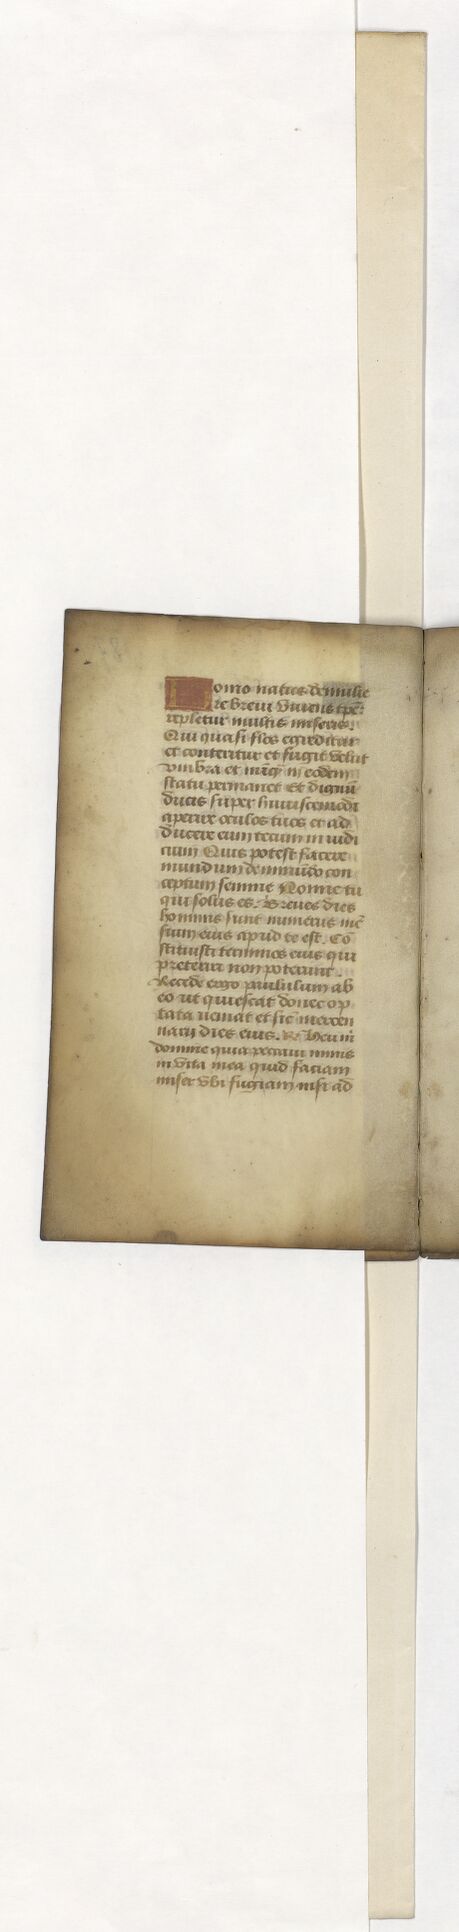 Homo natus de mulie
re brevi vivens tp̄e:
repletur multis miseriis.
Qui quasi flos egreditur
et conteritur et fugit velut
umbra et nūq̄ in eodem
statu permanet Et dignū
ducis super huiuscemodi
aperire oculos tuos et ad
ducere eum tecum in iudi
cium Quis potest facere
mundum de immūdo con
ceptum semine Nonne tu
qui solus es. Breves dies
hominis sunt numerus mē
sium eius apud te est. Cō
stituisti terminos eius qui
preteriri non poterunt.
Recede ergo paululum ab
eo ut quiescat donec op
tata veniat et sic mercen
narii dies eius. R. Heu m̄
domine quia peccavi nimis
in vita mea quid faciam
miser ubi fugiam nisi ad